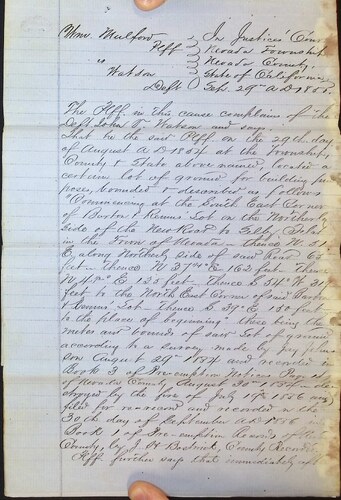 Wm. Mulford
Plff
vs
Watson
Deft
In Justices' Court
Nevada Township
Nevada County,
State of California
Feb. 29th A D 1856.
The Plff. in this cause complains of the
Deft. John Watson and says
That he the said Plff on the 29th day
of August A D 1854 at the Township,
County & State above named, located a
certain lot of ground for building pur-
poses, bounded & described as follows
"Commencing at the South East Corner
of Burton & Lot on the Northerly
side of the New Road to Selby Flat
in the Town of Nevada - thence N. 51
E. along Northerly side of said Road 65
feet - thence N 37 W E 162 feet - thence
N E 125 feet - thence S 34 W 31
feet to the North East Corner of said
Lot - thence S 29 E 150 feet
to the place of beginning - these being the
metes and bounds of said lot of ground
according to a survey made by
on August 29th 1854 and recorded in
Book 3 of Pre-emption Notices Records
of Nevada County August 30th 1854 - de-
stroyed by the fire of July 19th 1856 and
filed for re-record and recorded on the
30th day of September A D 1856 in
Book 1 of Pre-emption Records of
County, by J. H. Bostwick, County Recorder
Plff. further says that immediately